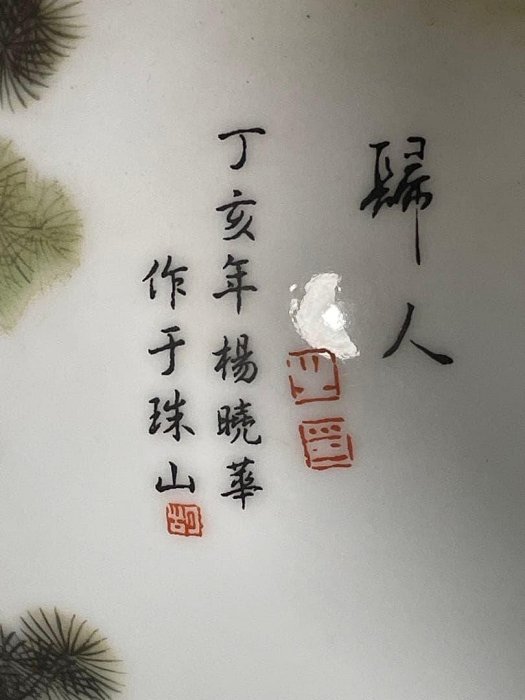 歸人
丁亥年楊曉華
作于珠山